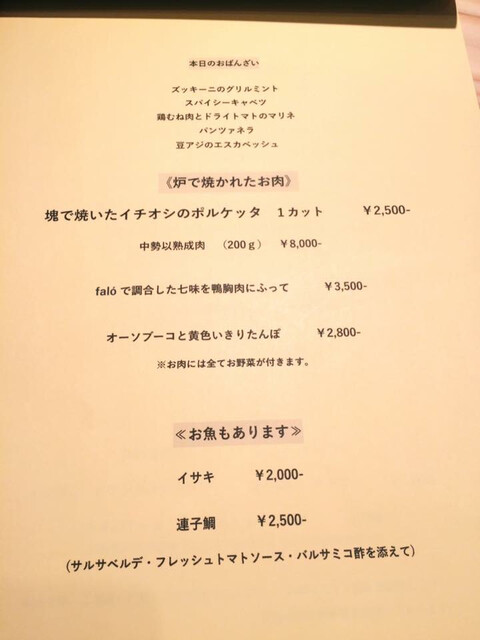 本日のおばんざい
ズッキーニのグリルミント
スパイシーキャベツ
鶏むね肉とドライトマトのマリネ
パンツァネラ
豆アジのエスカベッシュ
《炉で焼かれたお肉》
塊で焼いたイチオシのポルケッタ 1カット ￥2,500-
中勢以熟成肉 (200g) ￥8,000-
falóで調合した七味を鴨胸肉にふって ￥3,500-
オーソブーコと黄色いきりたんぽ ￥2,800-
※お肉には全てお野菜が付きます。
≪お魚もあります≫
イサキ ￥2,000-
連子鯛 ￥2,500-
(サルサベルデ・フレッシュトマトソース・バルサミコ酢を添えて)